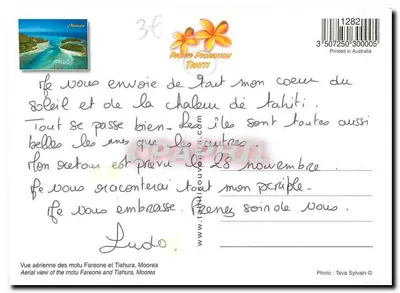 Moorea
3€
Pacific Promotion
Tahiti
1282
3 507250 300005
Printed in Australia
Je vous envoie de tout mon coeur du
soleil et de la chaleur de tahiti.
Tout se passe bien. Les îles sont toutes aussi
belles les unes que les autres.
Mon retour est prevu le 28 novembre.
Je vous raconterai tout mon périple.
Je vous embrasse. Prenez soin de vous.
Ludo.
Vue aérienne des motu Fareone et Tiahura, Moorea
Aerial view of the motu Fareone and Tiahura, Moorea
Photo : Teva Sylvain ©